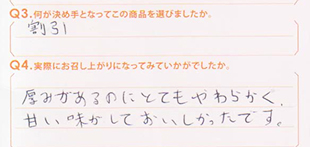 Q3.何が決め手となってこの商品を選びましたか。
割引
Q4.実際にお召し上がりになってみていかがでしたか。
厚みがあるのにとてもやわらかく、
甘い味がしておいしかったです。